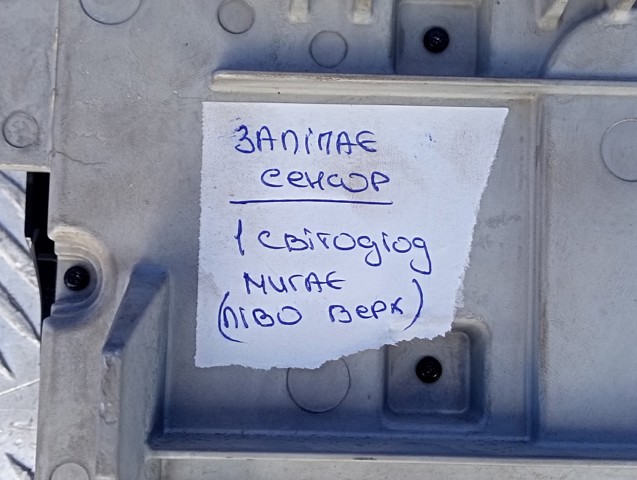 ЗАЛІПАЄ
СЕНСОР
1 СВІТОДІОД
МИГАЄ
(ЛІВО ВЕРХ)